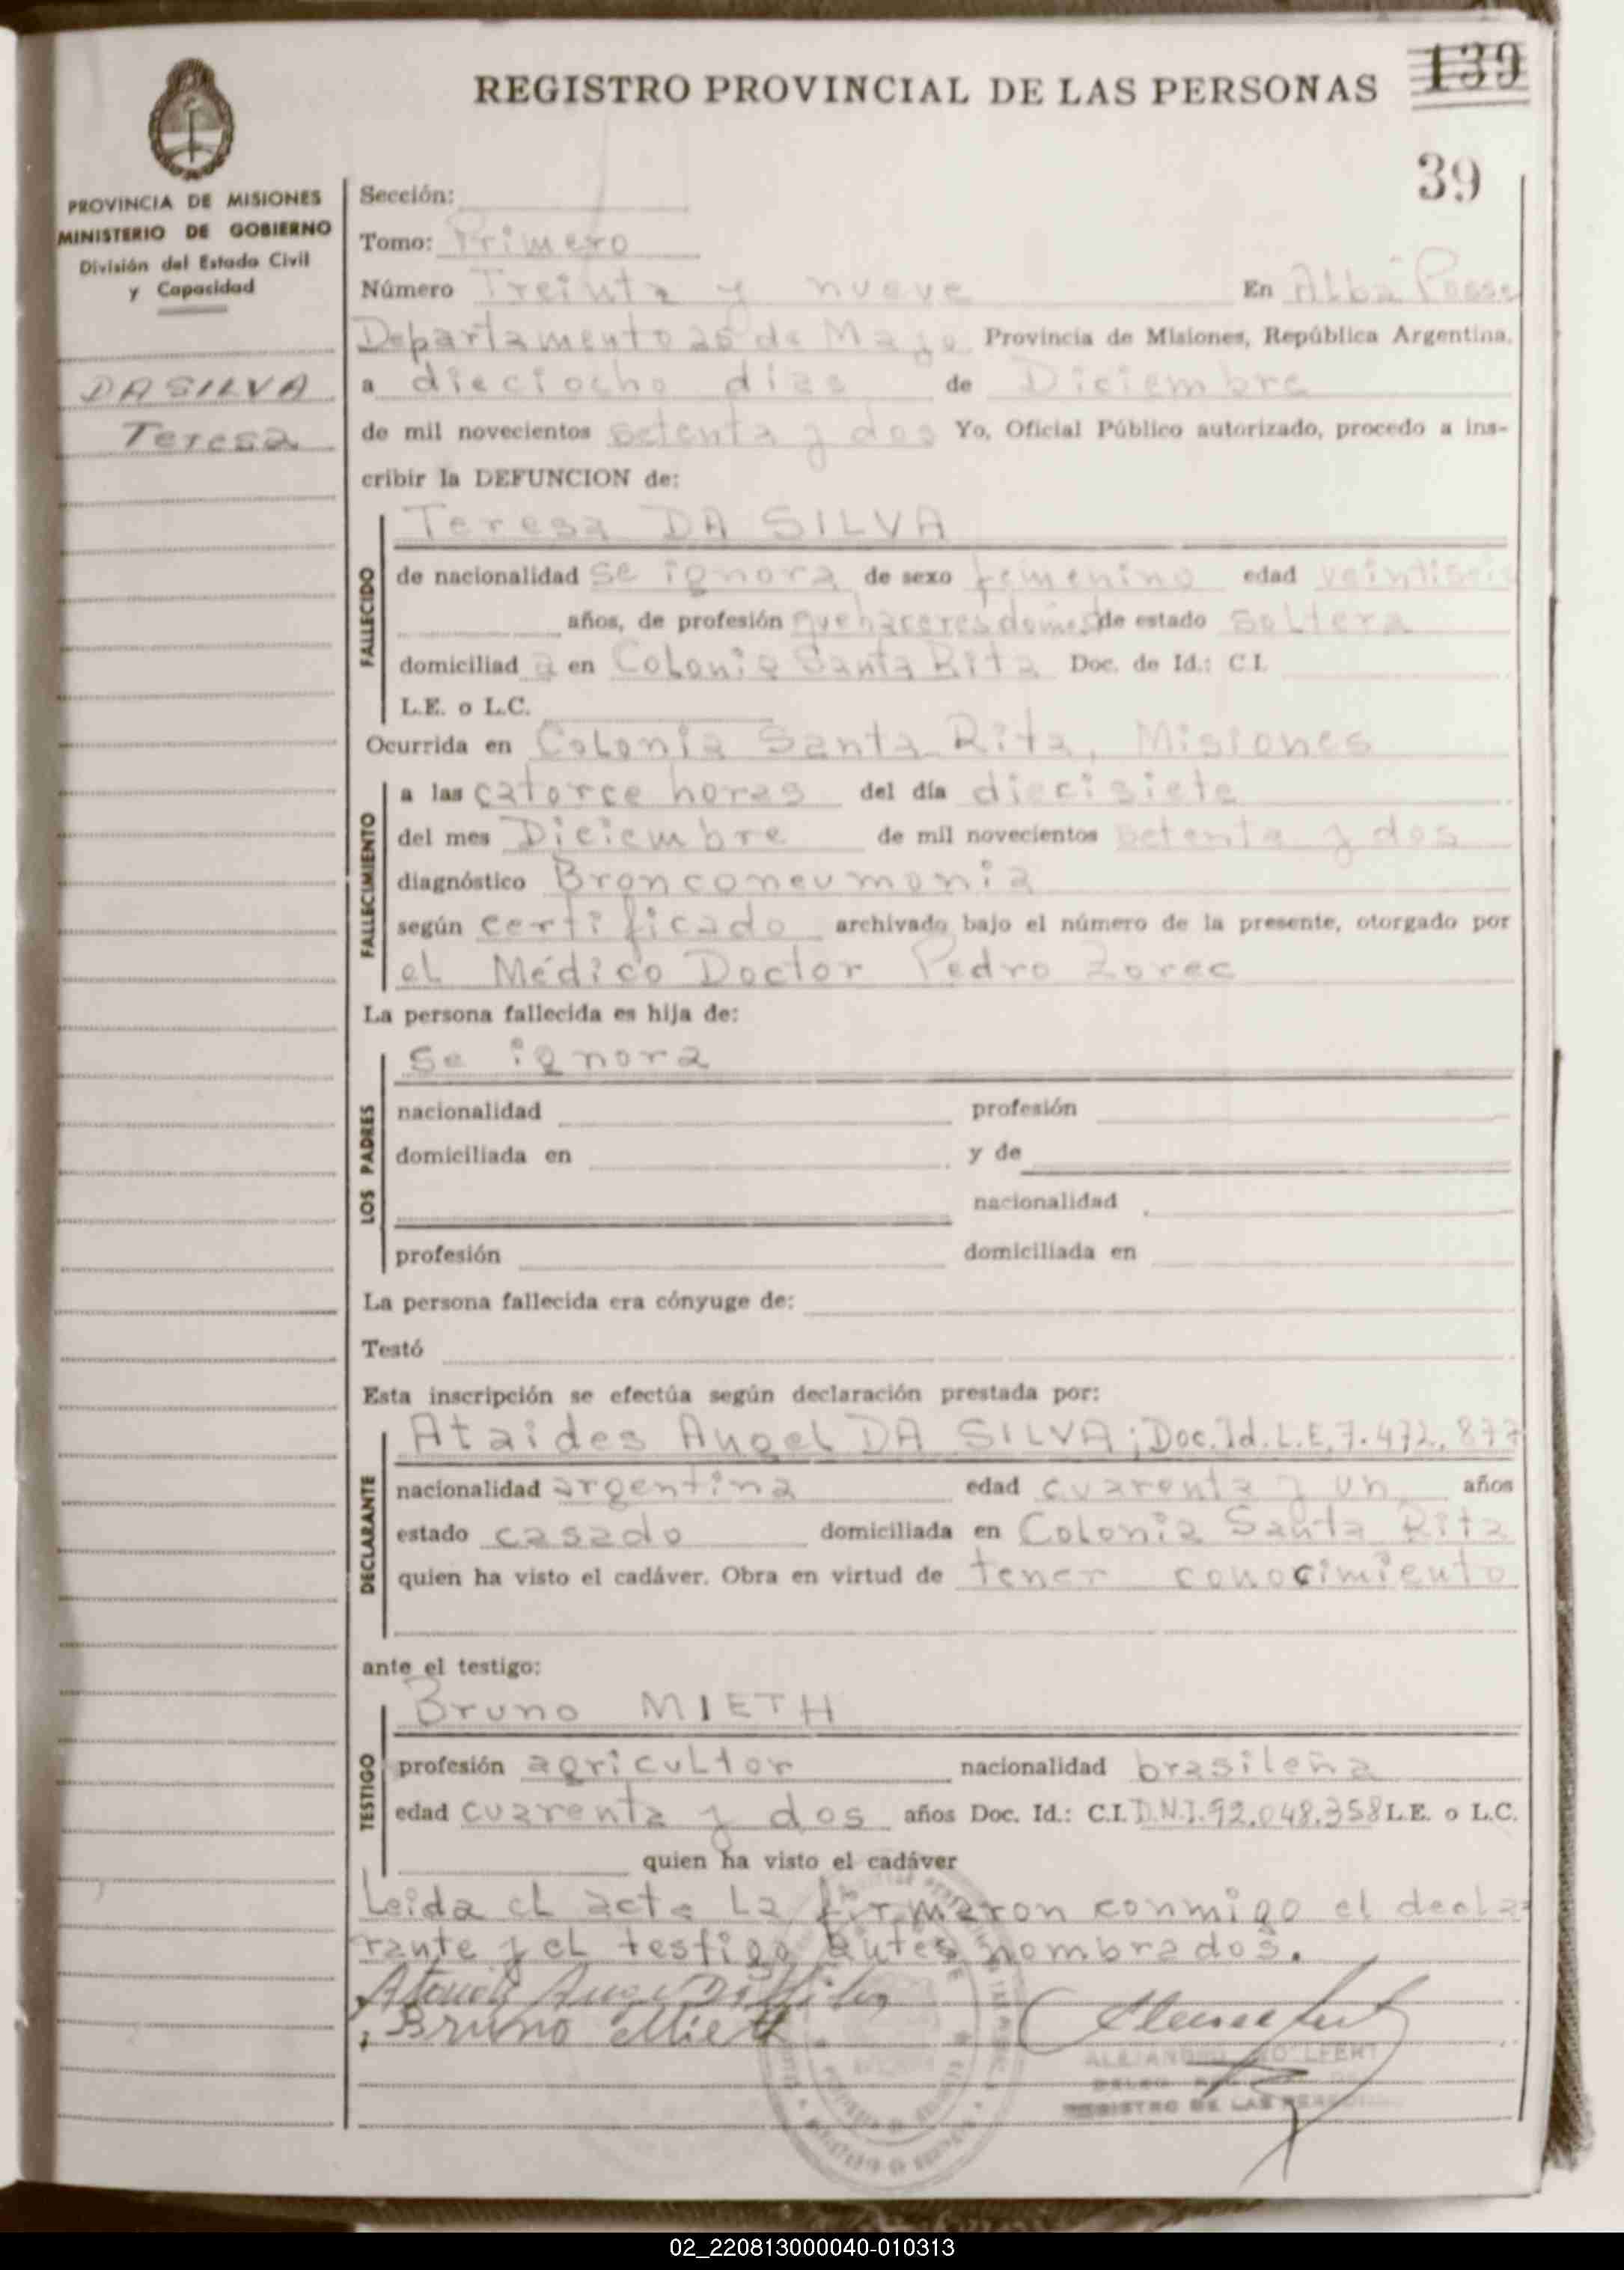 REGISTRO PROVINCIAL DE LAS PERSONAS
139
39
PROVINCIA DE MISIONES
MINISTERIO DE GOBIERNO
División del Estado Civil
y Capacidad
DA SILVA
Teresa
Sección:
Tomo: Primero
Número Treinta y nueve En Alba Posse
Departamento 25 de Mayo Provincia de Misiones, República Argentina,
a dieciocho días de Diciembre
de mil novecientos setenta y dos Yo, Oficial Público autorizado, procedo a ins-
cribir la DEFUNCION de:
FALLECIDO
Teresa DA SILVA
de nacionalidad se ignora de sexo femenino edad
años, de profesión quehaceres domes. de estado soltera
domiciliad a en Colonia Santa Rita Doc. de Id.: C.I.
L.E. o L.C.
Ocurrida en Colonia Santa Rita, Misiones
FALLECIMIENTO
a las catorce horas del día diecisiete
del mes Diciembre de mil novecientos setenta y dos
diagnóstico Bronconeumonia
según certificado archivado bajo el número de la presente, otorgado por
el Médico Doctor Pedro Zorec
La persona fallecida es hija de:
LOS PADRES
se ignora
nacionalidad profesión
domiciliada en y de
nacionalidad
profesión domiciliada en
La persona fallecida era cónyuge de:
Testó
Esta inscripción se efectúa según declaración prestada por:
DECLARANTE
Ataides Angel DA SILVA; Doc. Id. L.E. 7.472.877
nacionalidad argentina edad cuarenta y un años
estado casado domiciliada en Colonia Santa Rita
quien ha visto el cadáver. Obra en virtud de tener conocimiento
ante el testigo:
TESTIGO
Bruno MIETH
profesión agricultor nacionalidad brasileña
edad cuarenta y dos años Doc. Id.: C.I. D.N.I. 92.048.358 L.E. o L.C.
quien ha visto el cadáver
Leida el acta la firmaron conmigo el decla-
rante y el testigo antes nombrados.
Bruno Mieth
REGISTRO DE LAS
02_220813000040-010313